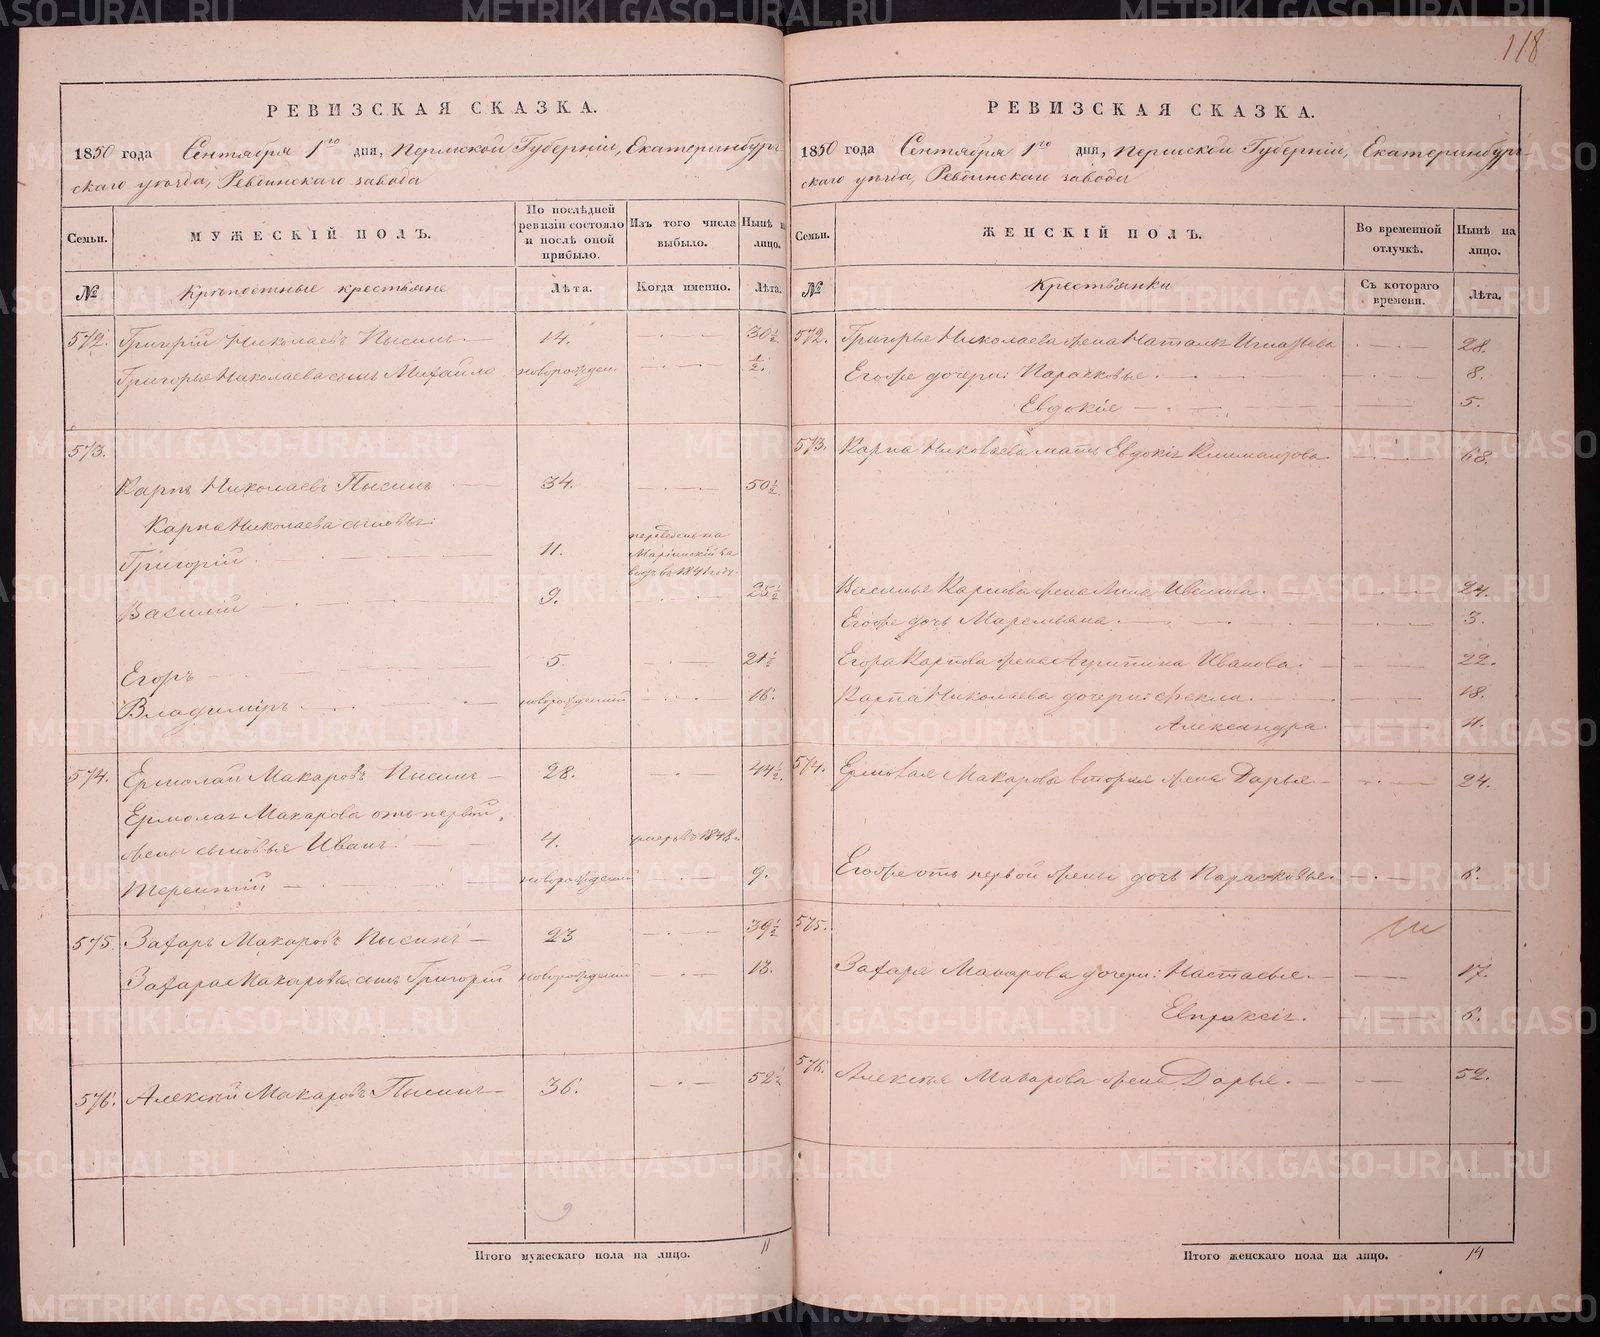 118
РЕВИЗСКАЯ СКАЗКА.
1850 года Сентября 1го дня, Пермской Губерніи, Екатеринбург
скаго уѣзда, Ревдинскаго завода
Семьи.
МУЖЕСКІЙ ПОЛЪ.
По послѣдней ревизіи состояло и послѣ оной прибыло.
Изъ того числа выбыло.
Нынѣ на лицо.
№
Крѣпостные крестьяне
Лѣта.
Когда именно.
Лѣта.
572. Григорій Николаевъ Пысинъ 14. 30½
Григорья Николаева сынъ Михайло новорожден. ½.
573.
Карпъ Николаевъ Пысинъ 34. 50½
Карпа Николаева сыновья:
Григорій 11. переведенъ на Маріинскій заводъ въ 1841 году.
Василій 9. 25½
Егоръ 5. 21½
Владимиръ новорожденный 16.
574. Ермолай Макаровъ Пысинъ 28. 44½
Ермолая Макарова отъ первой
жены сыновья Иванъ 4. умеръ въ 1848
Терентій новорожденный 9.
575. Захаръ Макаровъ Пысинъ 23 39½
Захара Макарова сынъ Григорій новорожденный 13.
576. Алексѣй Макаровъ Пысинъ 36. 52½
9
Итого мужескаго пола на лицо. 11
РЕВИЗСКАЯ СКАЗКА.
1850 года Сентября 1го дня, Пермской Губерніи, Екатеринбург
скаго уѣзда, Ревдинскаго завода
Семьи.
ЖЕНСКІЙ ПОЛЪ.
Во временной отлучкѣ.
Нынѣ на лицо.
№
Крестьянки
Съ котораго времени.
Лѣта.
572. Григорья Николаева жена Наталья 28.
Егоже дочери: Парасковья 8.
Евдокія 5.
573. Карпа Николаева мать Евдокія 68.
Василья Карпова жена Анна Иванова 24.
Егоже дочь Маремьяна 3.
Егора Карпова жена Агрипина Иванова 22.
Карпа Николаева дочери: Фекла 18.
Александра 11.
574. Ермолая Макарова вторая жена Дарья 24.
Егоже отъ первой жены дочь Парасковья 6.
575.
Захара Макарова дочери: Настасья 17.
Евпраксія 6.
576. Алексѣя Макарова жена Дарья 52.
Итого женскаго пола на лицо. 14
METRIKI.GASO-URAL.RU